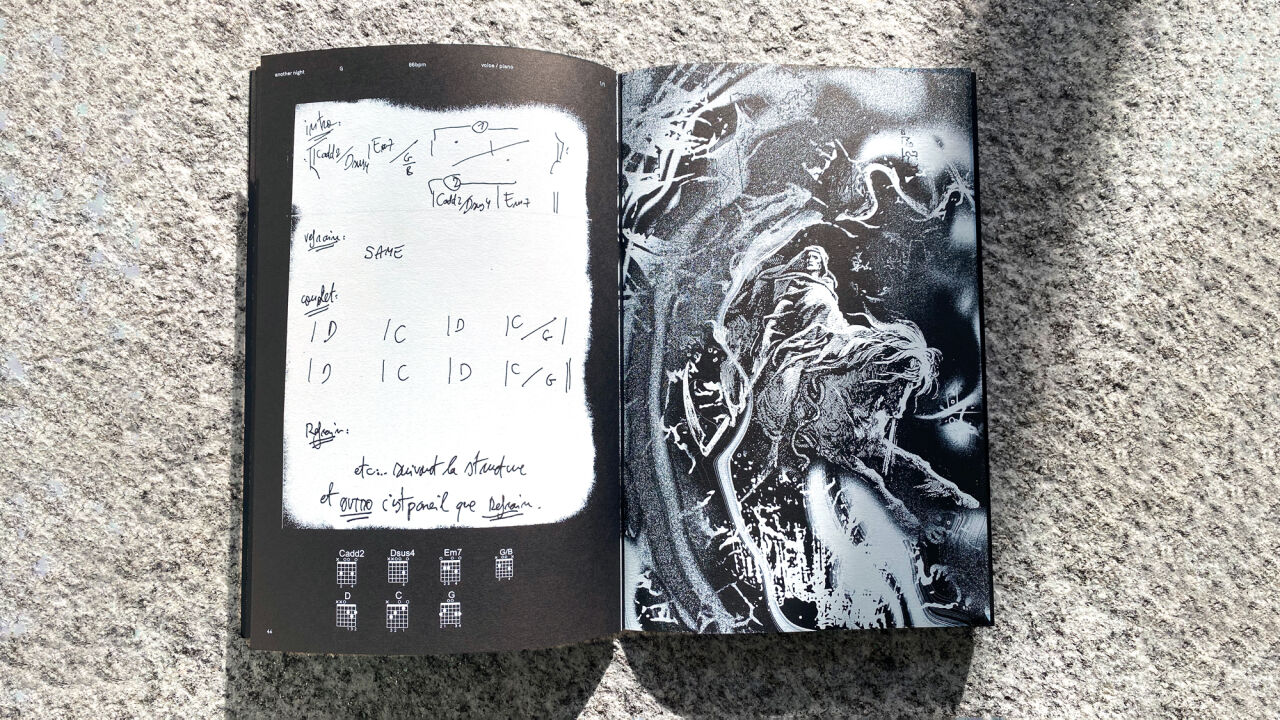 another night G 86bpm voice / piano
intro:
Cadd2 / Dsus4 | Em7 / G/B 1
2
Cadd2/Dsus4 | Em7
refrain:
SAME
couplet:
| D | C | D | C / G |
| D | C | D | C / G ||
Refrain:
etc... suivant la structure
et OUTRO c'est pareil que Refrain.
Cadd2 Dsus4 Em7 G/B
D C G